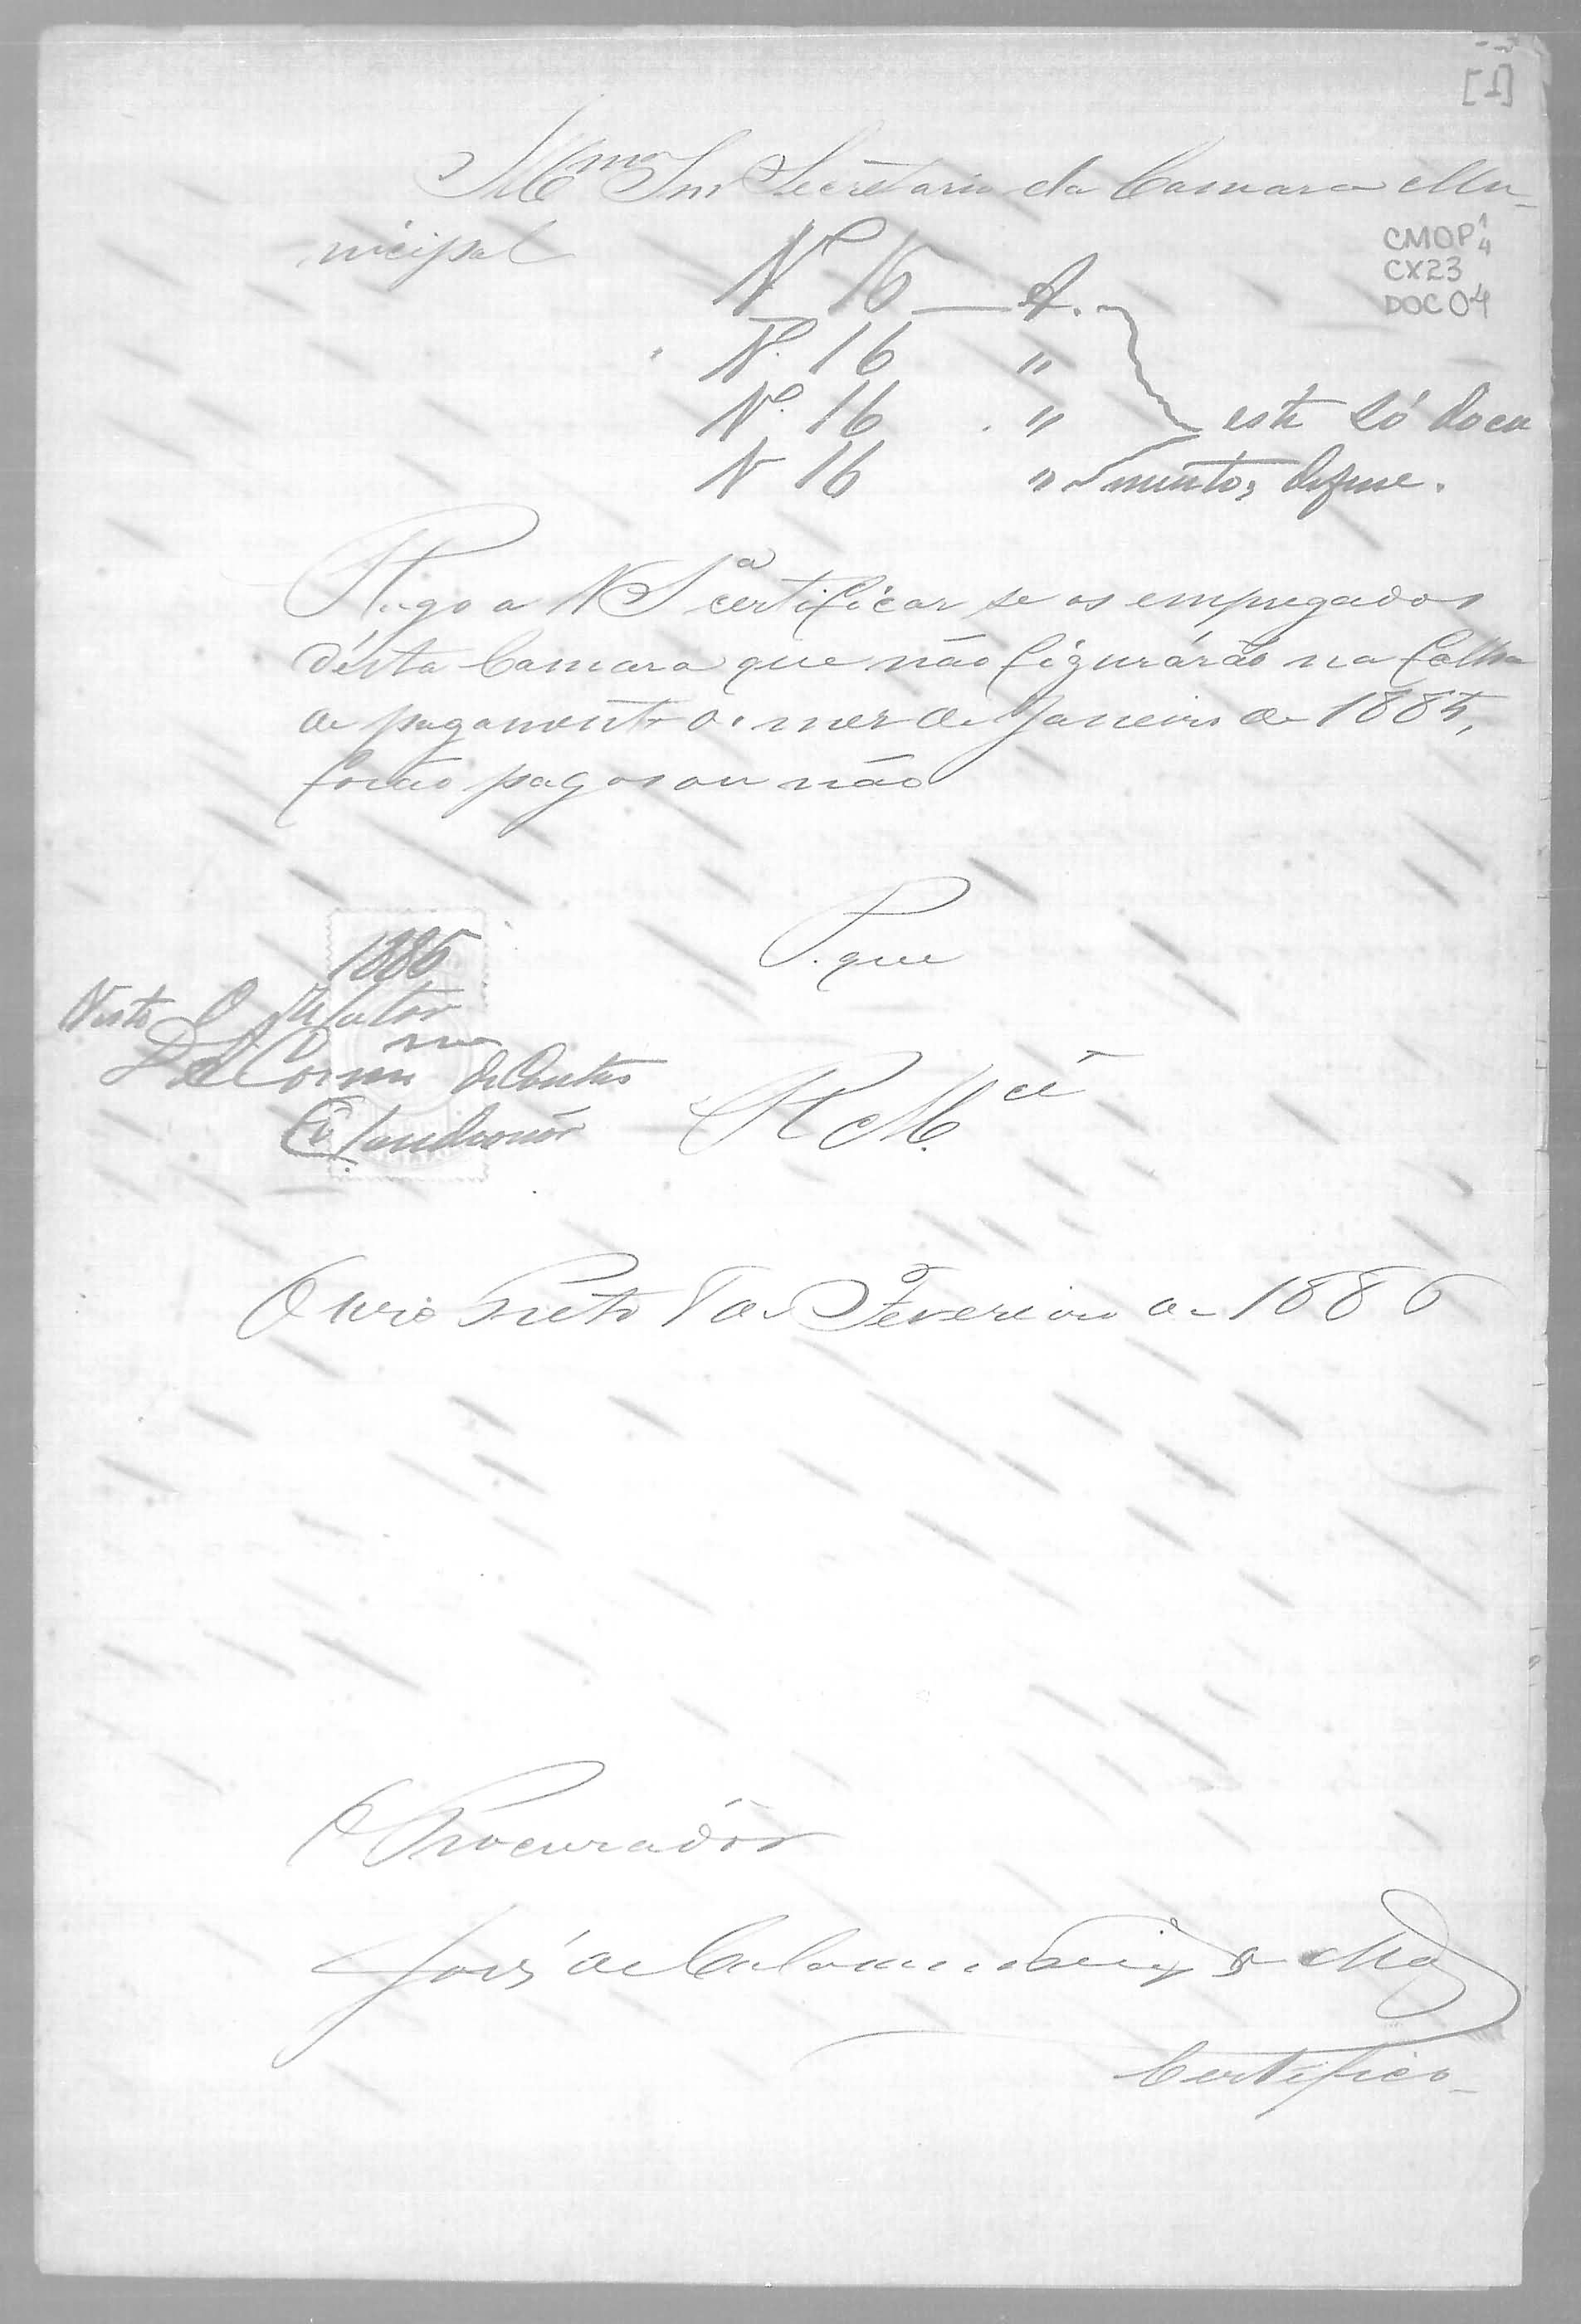 [1]
Illmo Snr Secretario da Camara Mu-
nicipal
CMOP 1/4
CX23
DOC 04
Nº 16 — A.
Nº 16 "
Nº 16 " este só docu
N 16 " mento,
Rogo a VSª certificar se os empregados
désta Camara que não figurárão na folha
de pagamento do mez de Janeiro de 1885,
forão pagos ou não
P. que
1886
Visto O
de Contas
R Mcê
Ouro Preto 8 de Fevereiro de 1886
O Procurador
José de
Certifico-